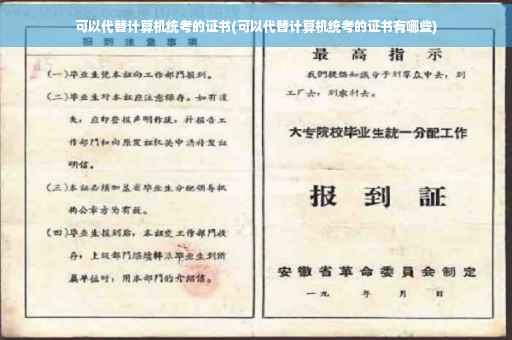 可以代替计算机统考的证书(可以代替计算机统考的证书有哪些)
报到注意事项
(一)毕业生凭本证向工作部门报到。
(二)毕业生对本证应注意保存。如有遗
失,应即登报声明作废,并报告工
作部门和向原发证机关申请补发证
明信。
(三)本证必须加盖省毕业生分配领导机
构公章方为有效。
(四)毕业生报到后,本证交工作部门收
存;上级部门
毕业生到所
属单位时,用本部门的介绍信。
最高指示
我们提倡知识分子到群众中去,到
工厂去,到农村去。
大专院校毕业生統一分配工作
报到証
安徽省革命委員会制定
一九 年 月 日